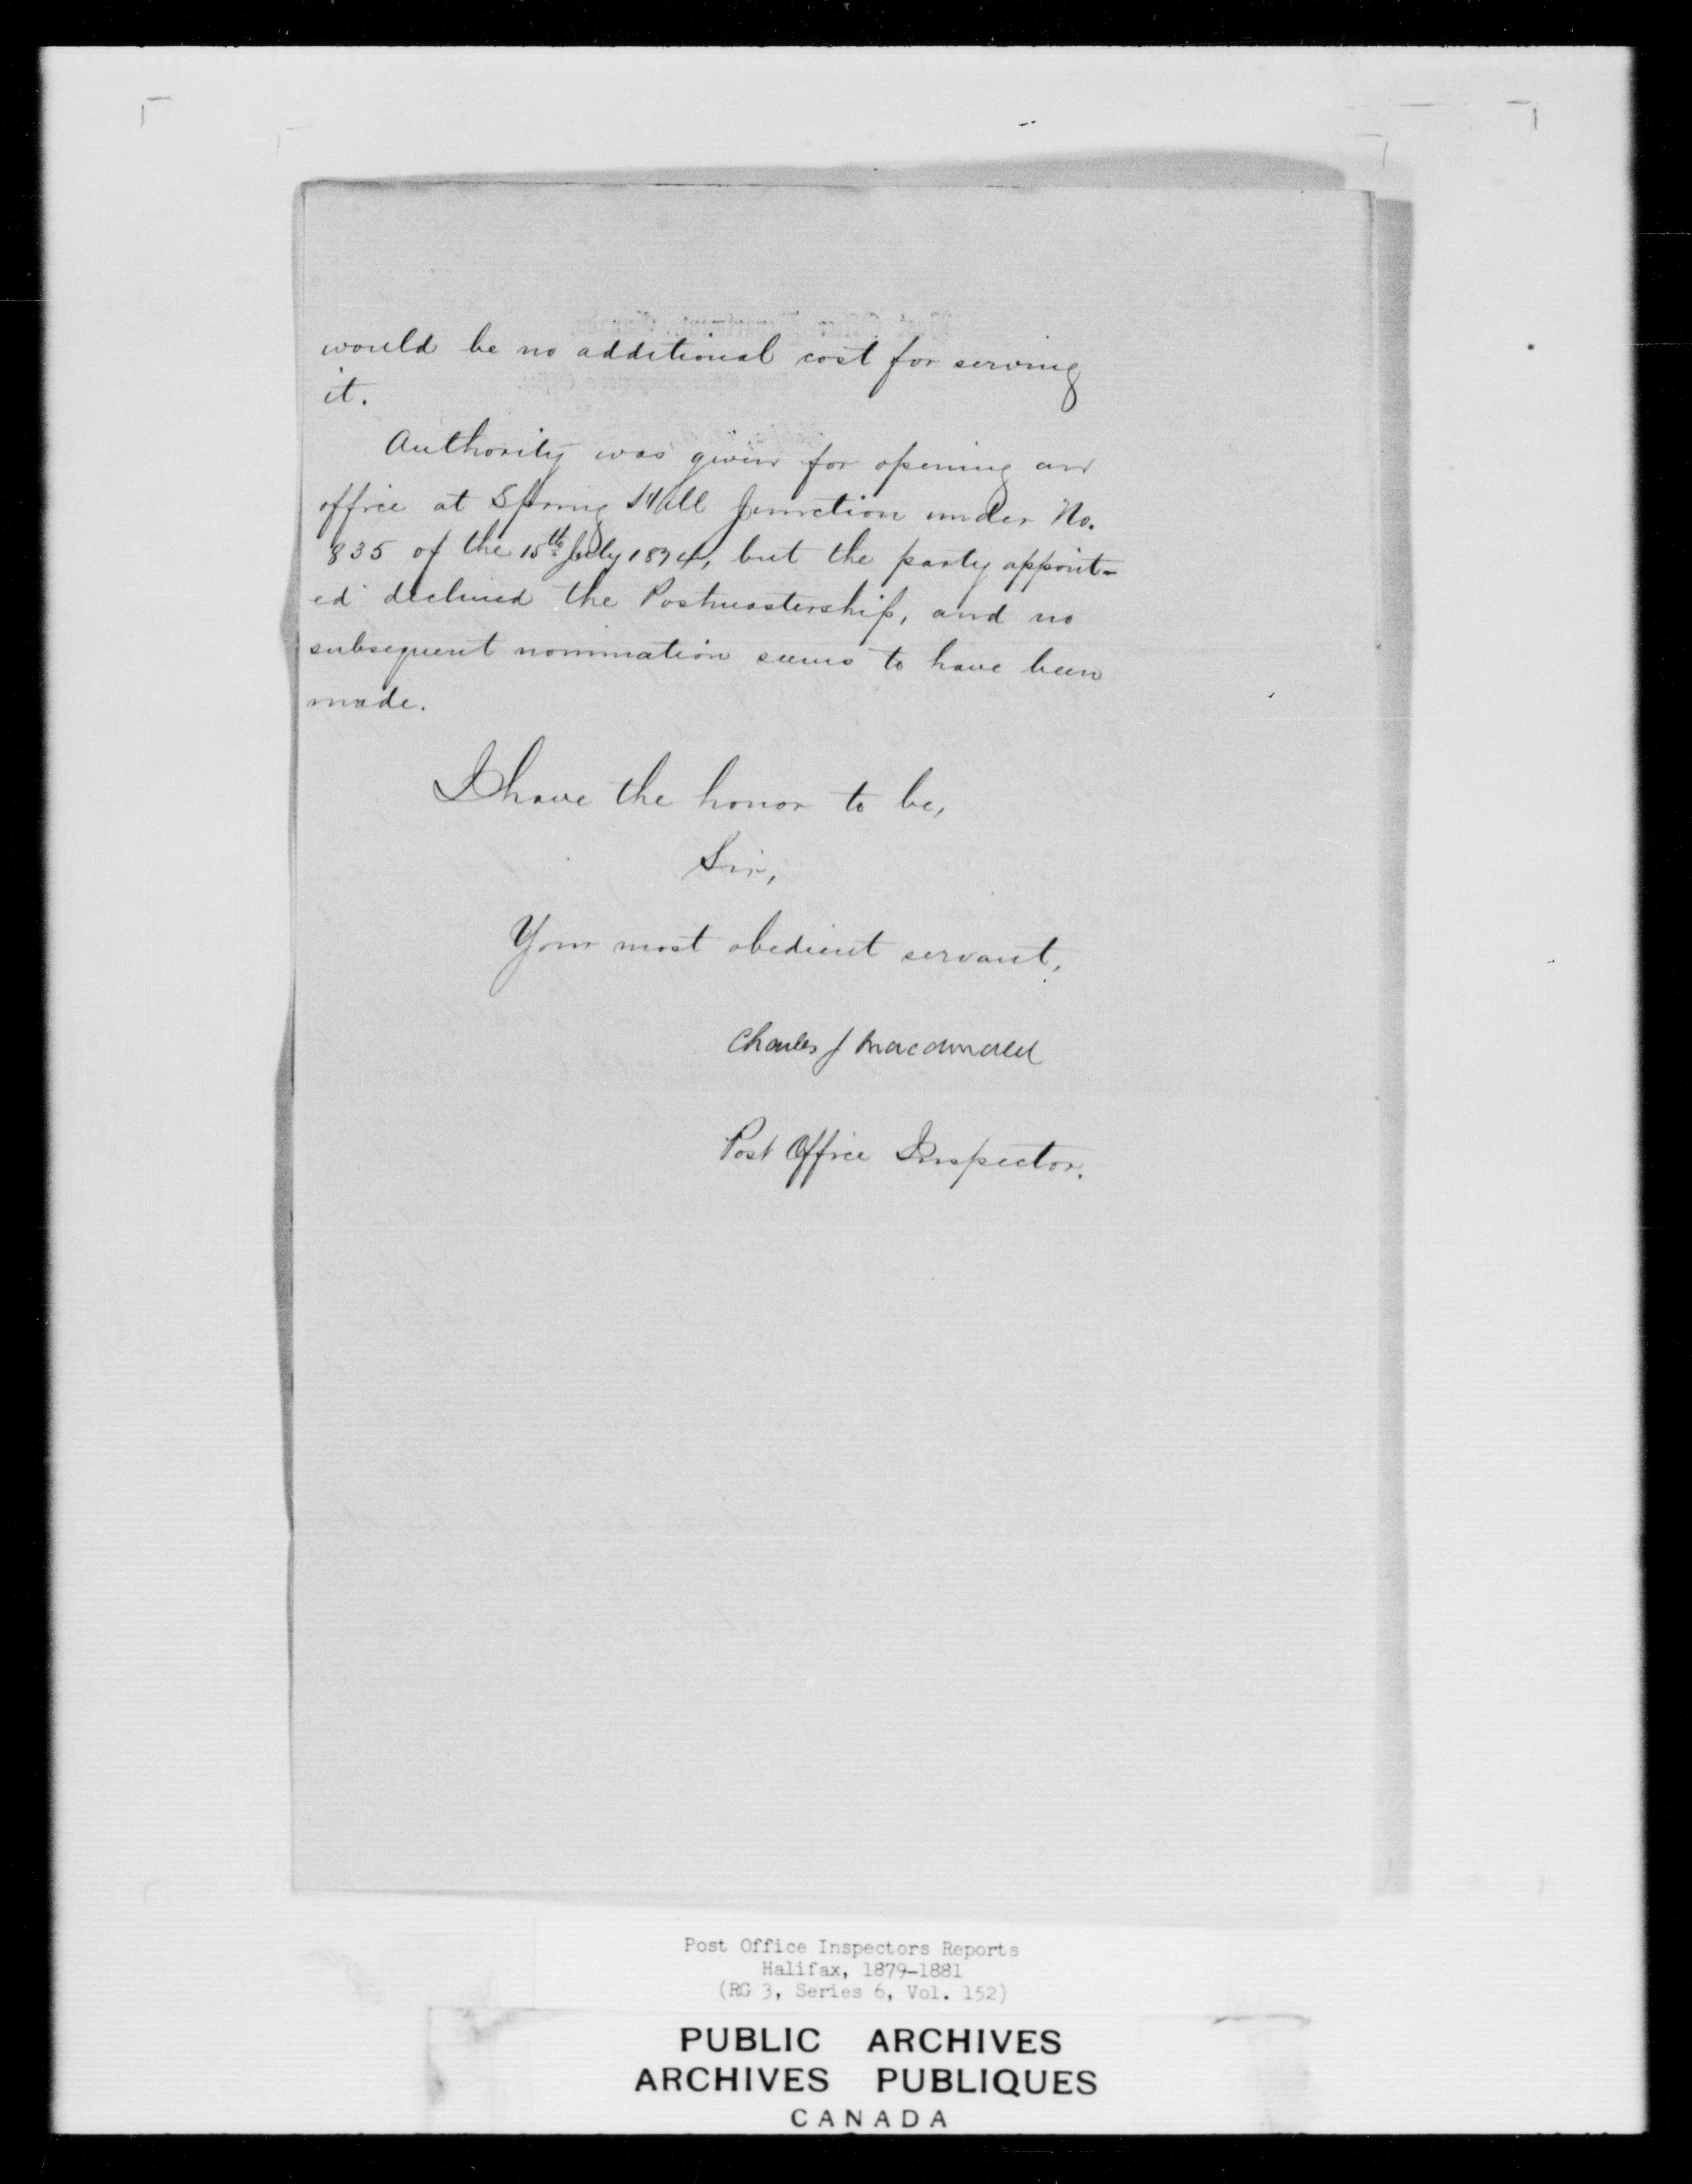 would be no additional cost for serving
it.
Authority was given for opening an
office at Spring Hill Junction under No.
835 of the 15th July 1874, but the party appoint-
ed declined the Postmastership, and no
subsequent nomination seems to have been
made.
I have the honor to be,
Sir,
Your most obedient servant,
Charles J Macdonald
Post Office Inspector.
Post Office Inspectors Reports
Halifax, 1879-1881
(RG 3, Series 6, Vol. 152)
PUBLIC ARCHIVES
ARCHIVES PUBLIQUES
CANADA